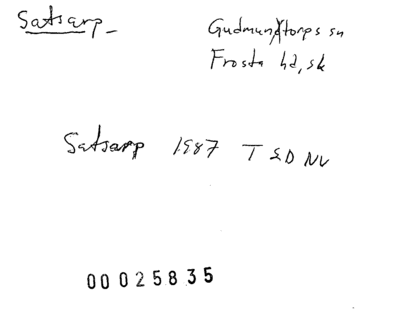 Satsarp
Gudmuntorps sn
Frosta hd, sk
Satsarp 1987 T 2D NV
00025835